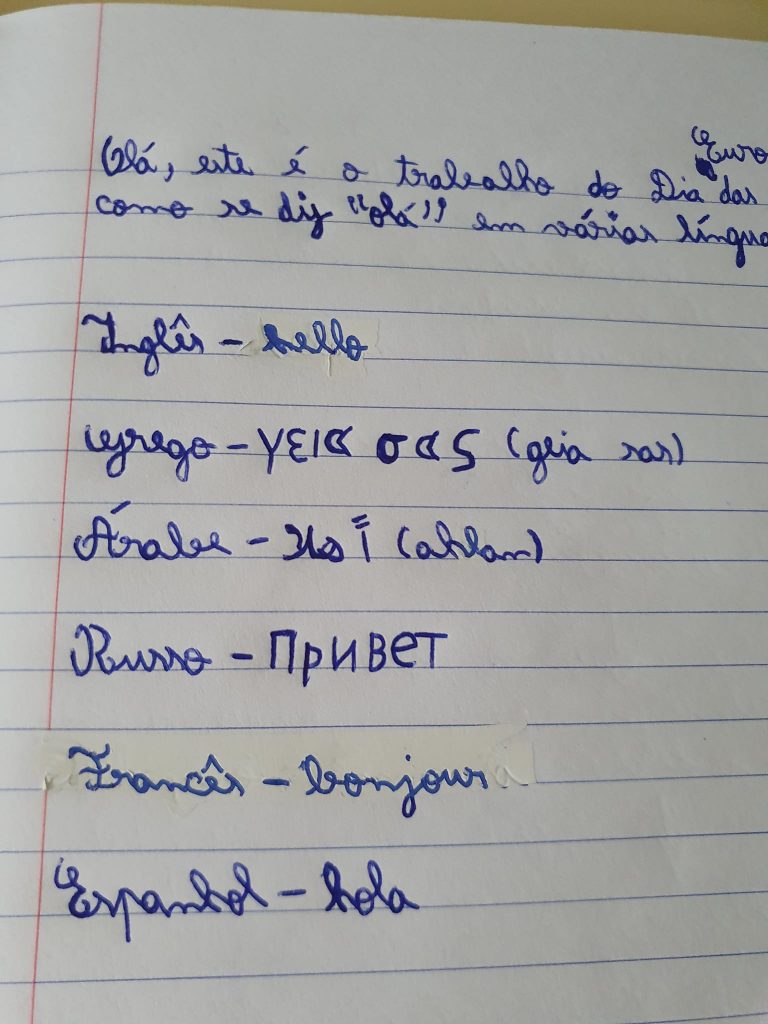 Olá, este é o trabalho do Dia das
como se diz "olá" em várias
Inglês - hello
Grego - γεια σας (geia sas)
Árabe - (ahlan)
Russo - Привет
Francês - bonjour
Espanhol - hola